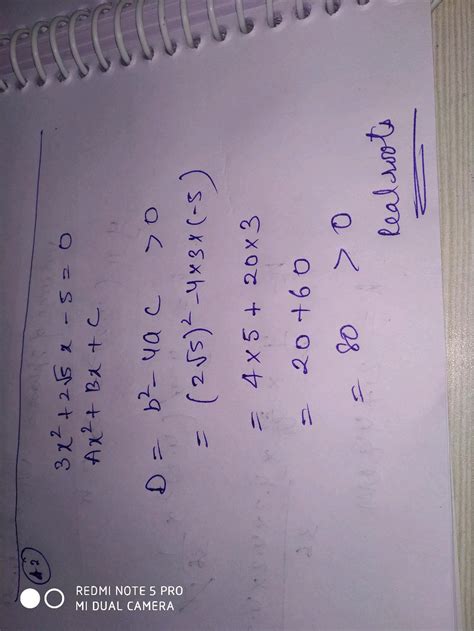 A2
3x² + 2√5 x - 5 = 0
Ax² + Bx + C
D = b² - 4ac > 0
= (2√5)² - 4×3×(-5)
= 4×5 + 20×3
= 20 + 60
= 80 > 0
Real roots
REDMI NOTE 5 PRO
MI DUAL CAMERA